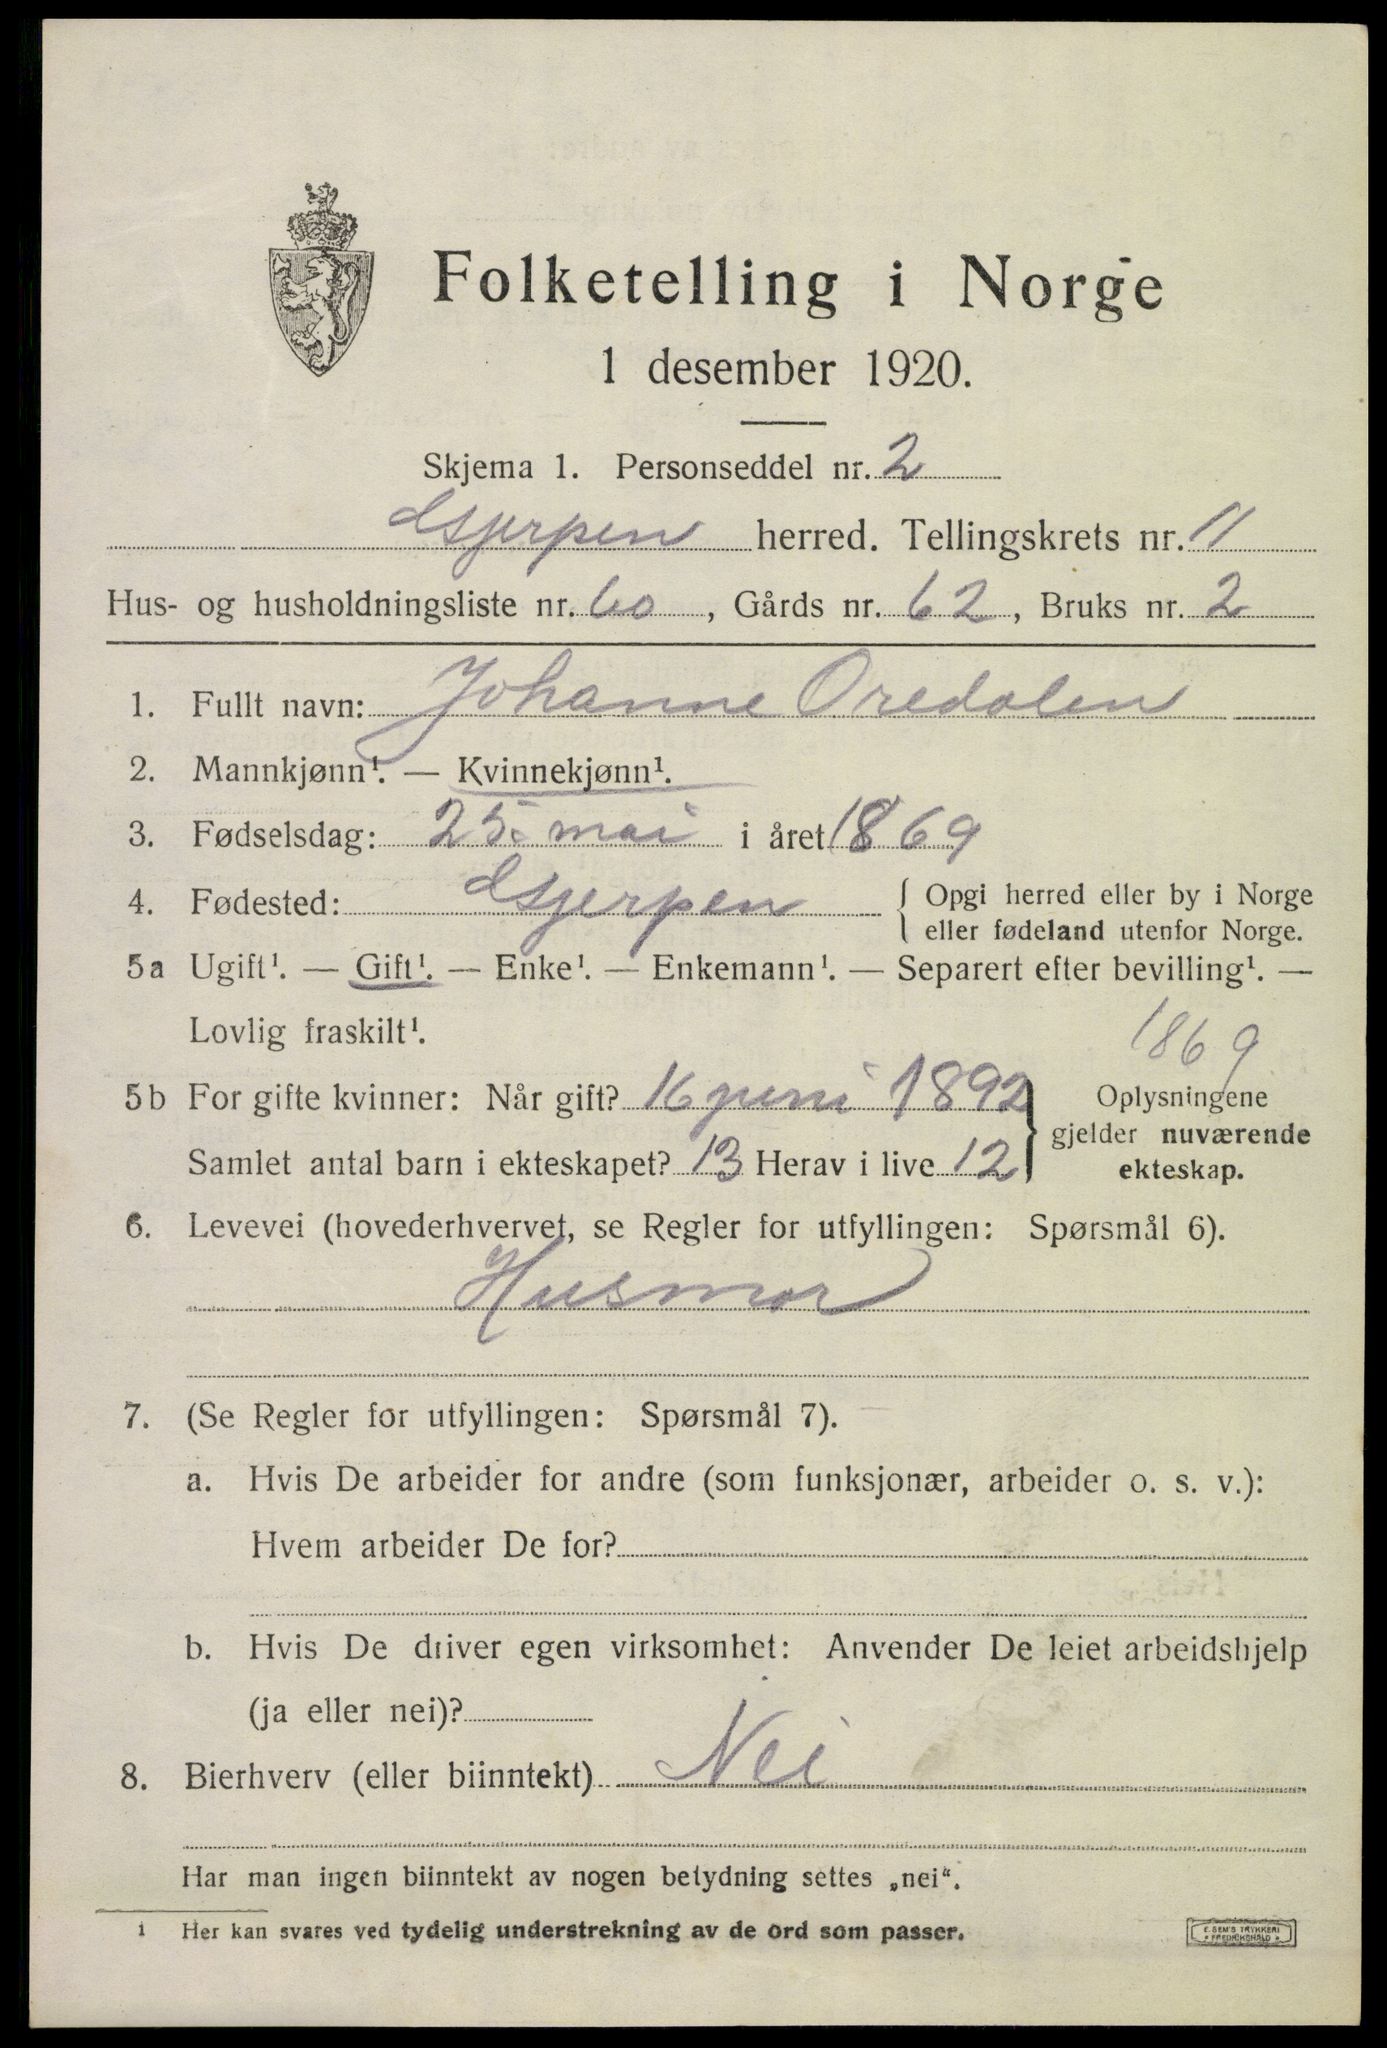 Folketelling i Norge
1 desember 1920.
Skjema 1. Personseddel nr. 2
Gjerpen herred. Tellingskrets nr. 11
Hus- og husholdningsliste nr. 60, Gårds nr. 62, Bruks nr. 2
1. Fullt navn: Johanne Oredalen
2. Mannkjønn¹. — Kvinnekjønn¹.
3. Fødselsdag: 25. mai i året 1869
4. Fødested: Gjerpen { Opgi herred eller by i Norge
eller fødeland utenfor Norge.
5a Ugift¹. — Gift¹. — Enke¹. — Enkemann¹. — Separert efter bevilling¹. —
Lovlig fraskilt¹.
1869
5b For gifte kvinner: Når gift? 16 juni 1892 } Oplysningene
gjelder nuværende
Samlet antal barn i ekteskapet? 13 Herav i live 12 ekteskap.
6. Levevei (hovederhvervet, se Regler for utfyllingen: Spørsmål 6).
Husmor
7. (Se Regler for utfyllingen: Spørsmål 7).
a. Hvis De arbeider for andre (som funksjonær, arbeider o. s. v.):
Hvem arbeider De for?
b. Hvis De driver egen virksomhet: Anvender De leiet arbeidshjelp
(ja eller nei)?
8. Bierhverv (eller biinntekt) Nei
Har man ingen biinntekt av nogen betydning settes „nei“.
1 Her kan svares ved tydelig understrekning av de ord som passer.
E. SEM'S TRYKKERI
* FREDRIKSHALD *